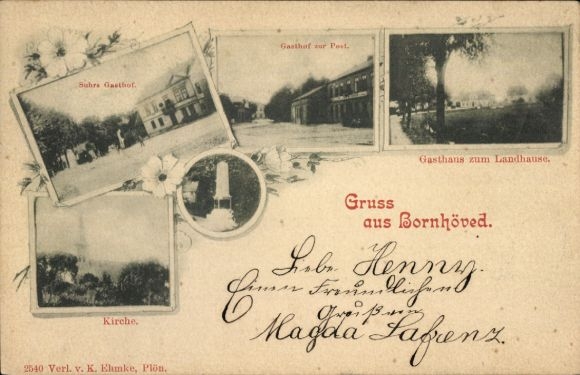 Suhrs Gasthof.
Gasthof zur Post.
Gasthaus zum Landhause.
Gruss
aus Bornhöved.
Liebe Henny.
Einen Freundlichen
Gruß von
Magda Lafrenz.
Kirche.
2540 Verl. v. K. Ehmke, Plön.